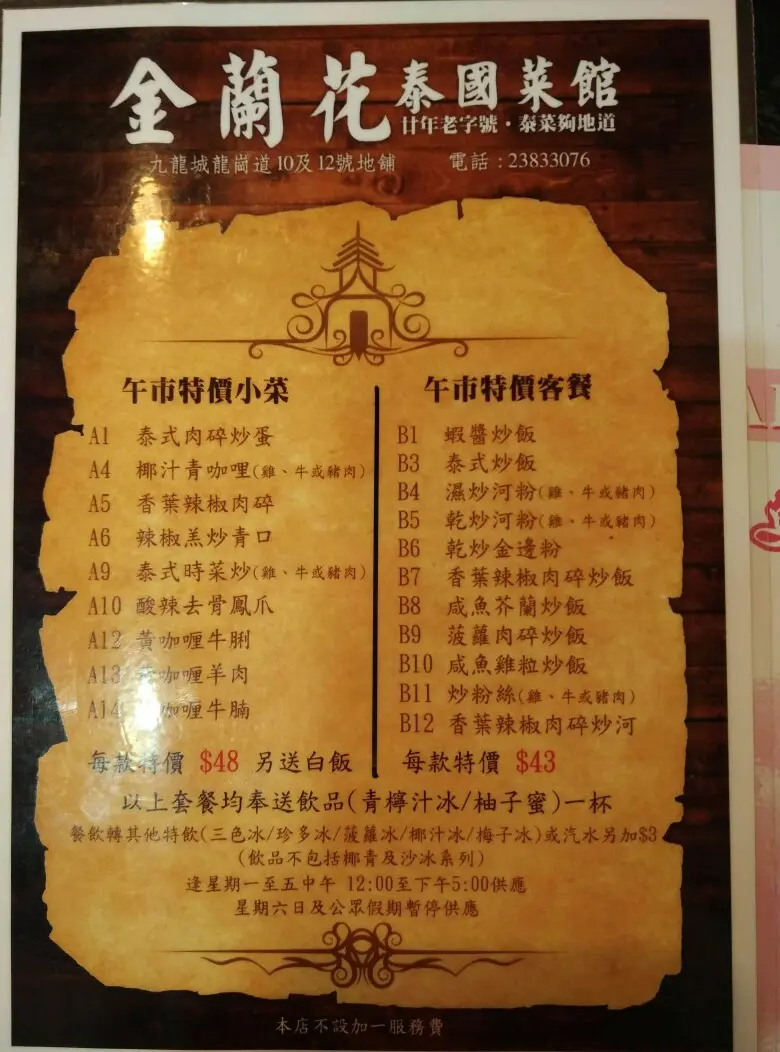 金蘭花泰國菜館
廿年老字號·泰菜夠地道
九龍城龍崗道10及12號地舖 電話:23833076
午市特價小菜
A1 泰式肉碎炒蛋
A4 椰汁青咖哩(雞、牛或豬肉)
A5 香葉辣椒肉碎
A6 辣椒羔炒青口
A9 泰式時菜炒(雞、牛或豬肉)
A10 酸辣去骨鳳爪
A12 黃咖喱牛脷
A13 咖喱羊肉
A14 咖喱牛腩
每款特價 $48 另送白飯
午市特價客餐
B1 蝦醬炒飯
B3 泰式炒飯
B4 濕炒河粉(雞、牛或豬肉)
B5 乾炒河粉(雞、牛或豬肉)
B6 乾炒金邊粉
B7 香葉辣椒肉碎炒飯
B8 咸魚芥蘭炒飯
B9 菠蘿肉碎炒飯
B10 咸魚雞粒炒飯
B11 炒粉絲(雞、牛或豬肉)
B12 香葉辣椒肉碎炒河
每款特價 $43
以上套餐均奉送飲品(青檸汁冰/柚子蜜)一杯
餐飲轉其他特飲(三色冰/珍多冰/菠蘿冰/椰汁冰/梅子冰)或汽水另加$3
(飲品不包括椰青及沙冰系列)
逢星期一至五中午 12:00至下午5:00供應
星期六日及公眾假期暫停供應
本店不設加一服務費